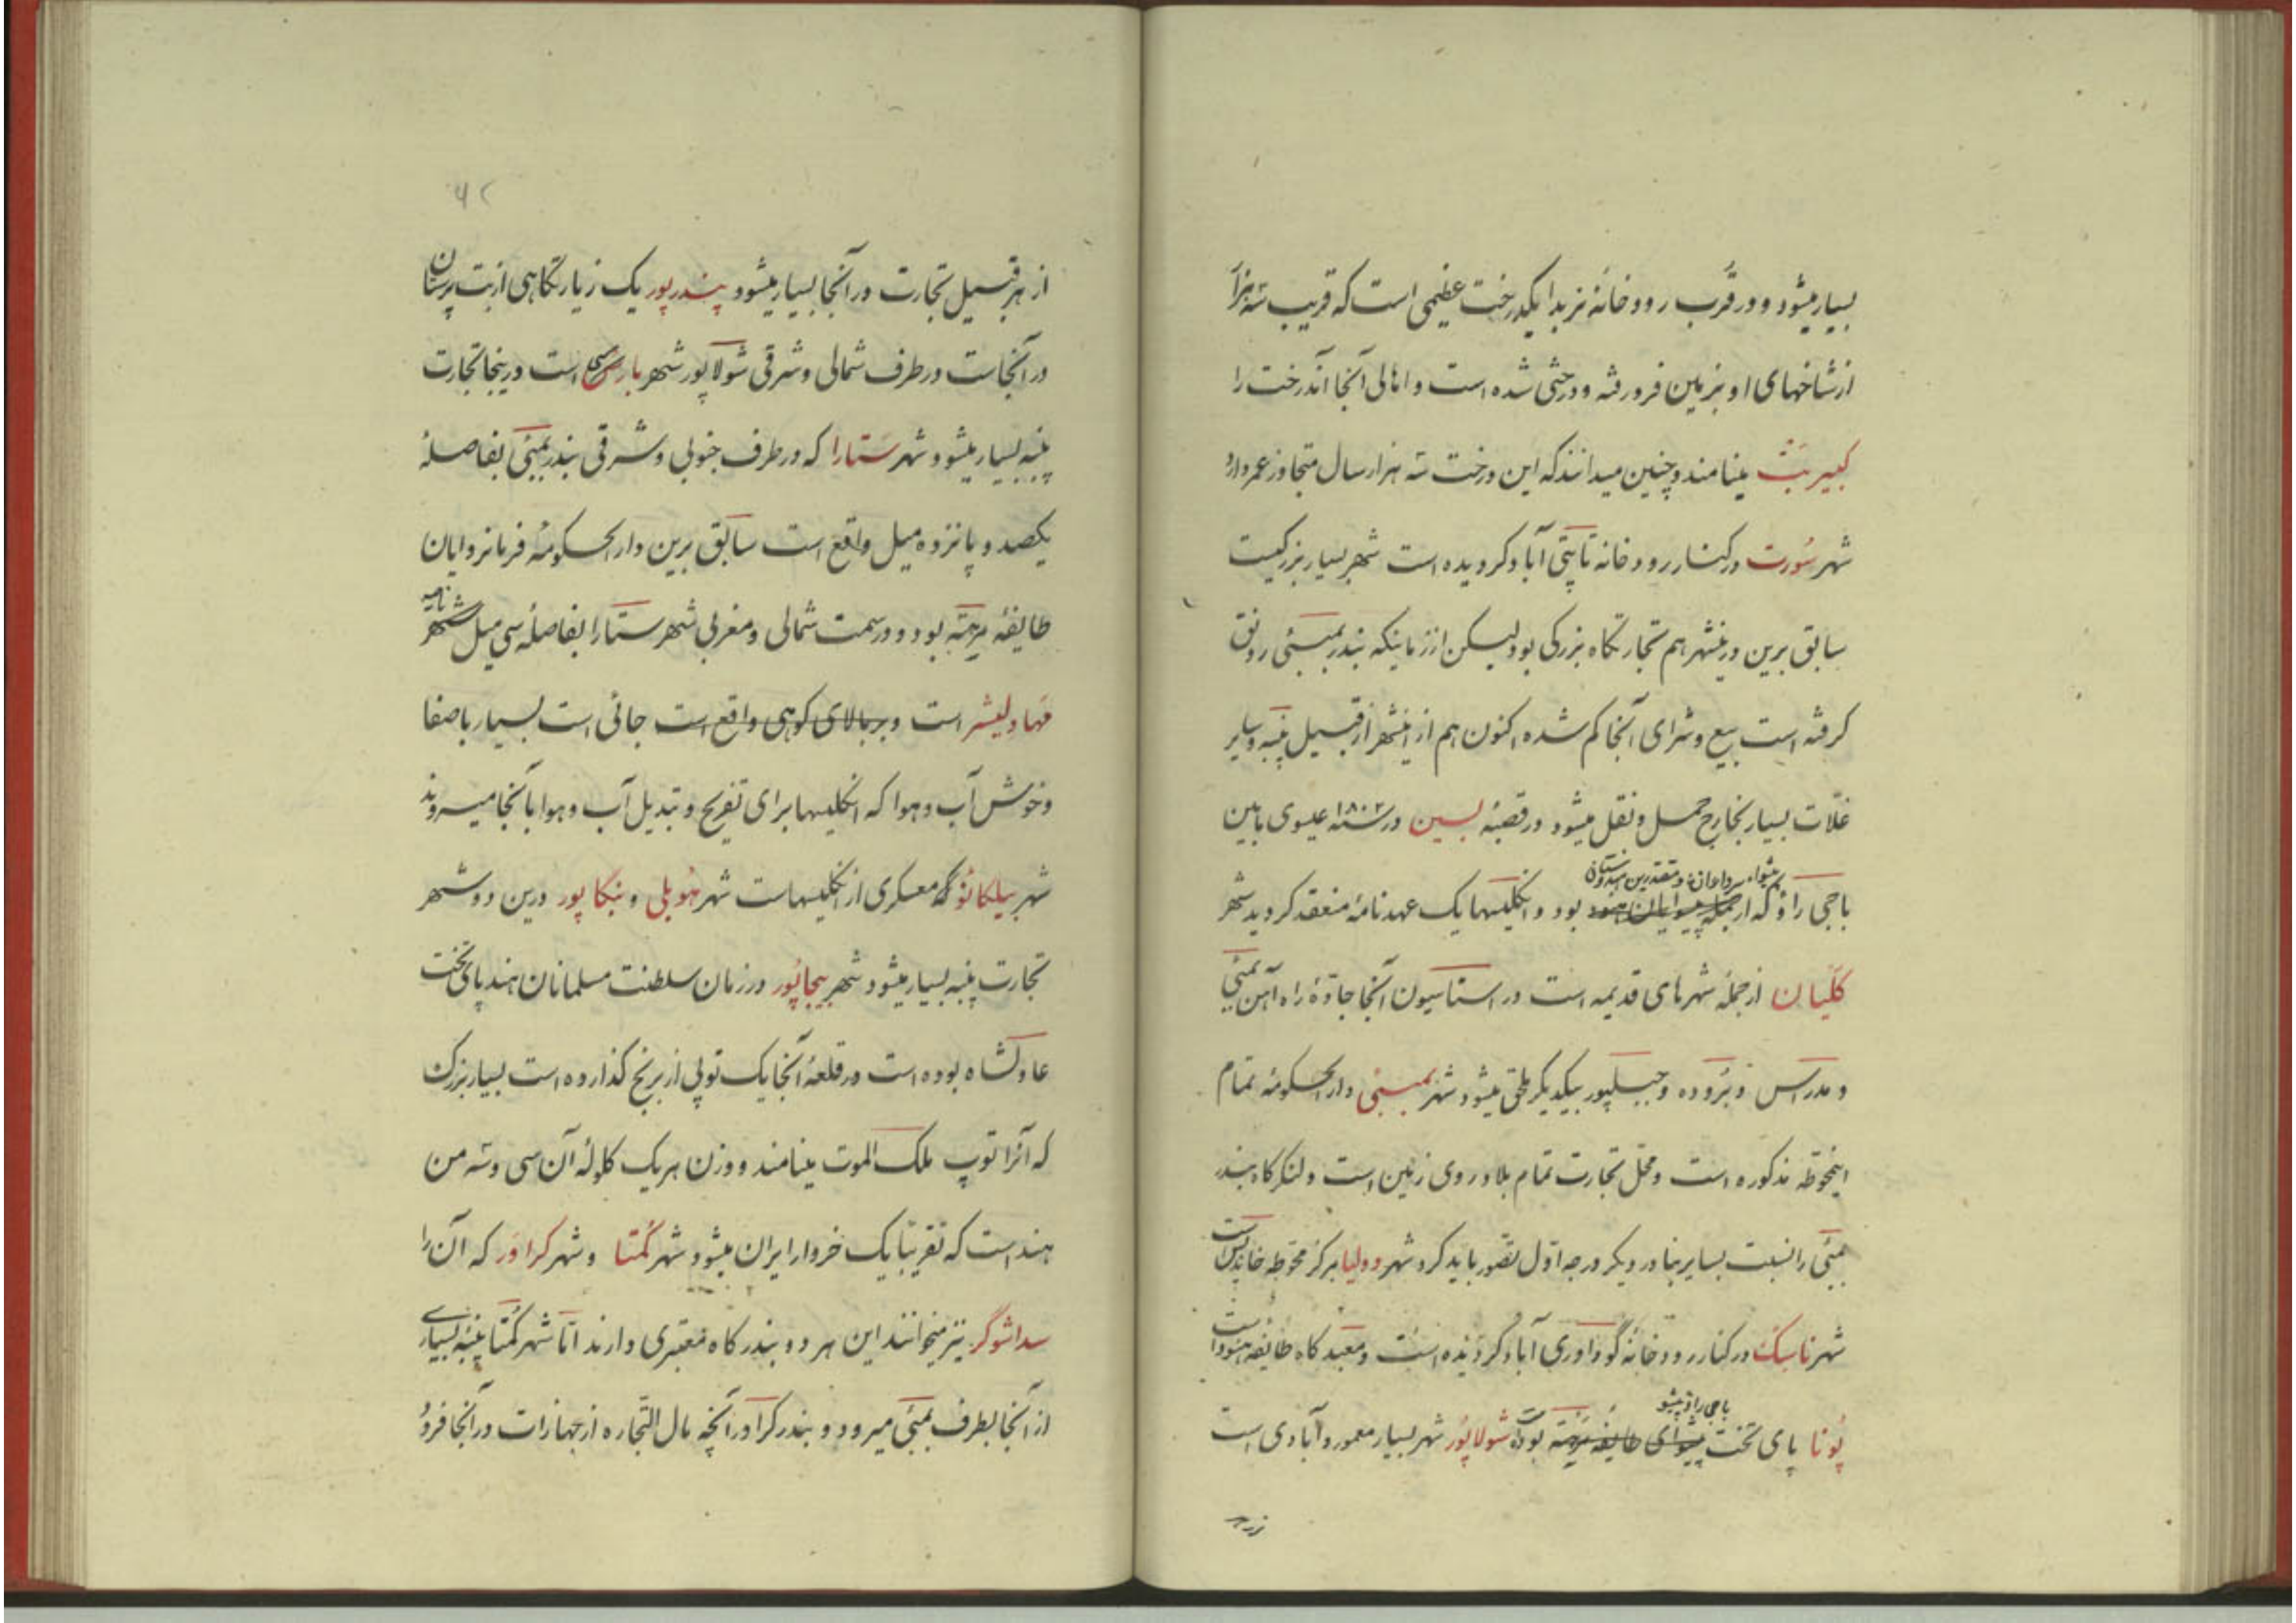 بسیار میشود و در قرب رودخانهٔ نربدا یکدرخت عظیمی است که قریب سه هزار
از شاخهای او بزمین فرو رفته و درختی شده است و اهالی آنجا آندرخت را
کبیر بَتْ مینامند و چنین میدانند که این درخت سه هزار سال متجاوز عمر دارد
شهر سُورت در کنار رودخانه تاپتی آباد کردیده است شهر بسیار بزرکیست
سابق برین درینشهر هم تجارتکاه بزرکی بود لیکن از زمانیکه بندر بمبئی رونق
کرفته است بیع و شرای آنجا کم شده اکنون هم از اینشهر از قبیل پنبه و سایر
غلّات بسیار بخارج حمل و نقل میشود در قصبهٔ بسین در سنه ۱۸۰۲ عیسوی مابین
پیشواء سرداران و مقتدرین هندوستان
باجی راؤ که از جمله پیشوایان هنود بود و انکلیسها یک عهدنامهٔ منعقد کردید شهر
کلّیان از جملهٔ شهرهای قدیمه است در استاسیون آنجا جادّهٔ راه آهن بمبئی
و مدرس و بَرَوده و جبلپور بیکدیکر ملحق میشود شهر بمبئی دارالحکومهٔ تمام
اینحوطه مذکوره است و محل تجارت تمام بلاد روی زمین است و لنکرکاه بندر
بمبئی را نسبت بسایر بنادر دیکر درجه اوّل تصوّر باید کرد شهر دولیا مرکز محوّطه خاندیس است
شهر ناسِک در کنار رودخانهٔ گوداوری آباد کردیده است و معبدکاه طایفه هنود است
باجی راؤ پیشو
پُونا پای تخت پیشوای طایفهٔ مرَهتَه بوده شولاپُور شهر بسیار معمور و آبادی است
۶۲
از هر قبیل تجارت در آنجا بسیار میشود پندرپور یک زیارتگاهی از بت پرستان
در آنجاست در طرف شمالی و شرقی شولاپور شهر بارسی است درینجا تجارت
پنبه بسیار میشود شهر سَتارا که در طرف جنوبی و شرقی بندر بمبئی بفاصلهٔ
یکصد و پانزده میل واقع است سابق برین دارالحکومهٔ فرمانروایان
طایفهٔ مرهته بود و در سمت شمالی و مغربی شهر ستارا بفاصلهٔ سی میل شهر
مَهاولیشر است و بر بالای کوهی واقع است جائی است بسیار باصفا
و خوش آب و هوا که انکلیسها برای تفریح و تبدیل آب و هوا بآنجا میروند
شهر بیلکانؤ که معسکری از انکلیسهاست شهر هُوبلی و بنکاپور درین دو شهر
تجارت پنبه بسیار میشود شهر بیجاپُور در زمان سلطنت مسلمانان هند پای تخت
عادلشاه بوده است در قلعهٔ آنجا یک توپی از برنج کذارده است بسیار بزرک
که آنرا توپ ملک الموت مینامند و وزن هر یک کلولهٔ آن سی و سه من
هند است که تقریبًا یک خروار ایران میشود شهر کُمتا و شهر کراوَر که آن را
سداشوگر نیز میخوانند این هر دو بندرکاه معتبری دارند امّا شهر کُمتا پنبهٔ بسیاری
از آنجا بطرف بمبئی میرود و بندر کراور آنچه مال التجاره از جهازات در آنجا فرود